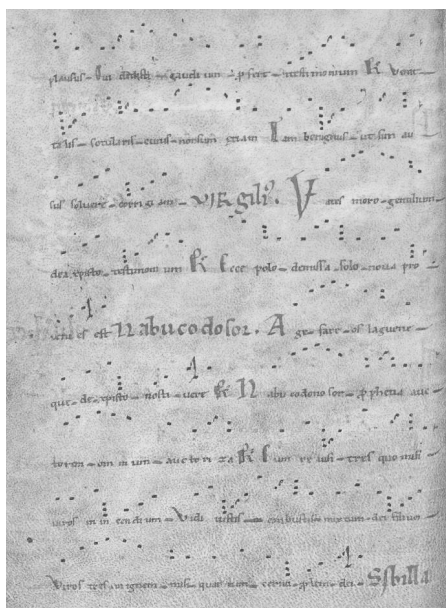 plausus – gaudium – fert – testimonium R Venit
talis – sotularis – cuius – non sum etiam Tam benignus – ut sim au
sus solvere – corrigiam – VIRGiliꝰ. Vates maro – gentilium –
da xpisto – testimonium R Ecce polo – demissa – solo – noua pro
genies est Nabucodosor. Age – fare – os laguene –
que – de – xpisto – nosti – uere R Nabucodonosor – ꝓphetia auc
torem – omnium – auctoriza R Cum reuisi – tres quo misi
uiros in incendium – Vidi iustis – combustis mixtum – dei filium –
Viros tres in ignem – misi – quartum – cerno – ꝓlem – dei – Sibilla